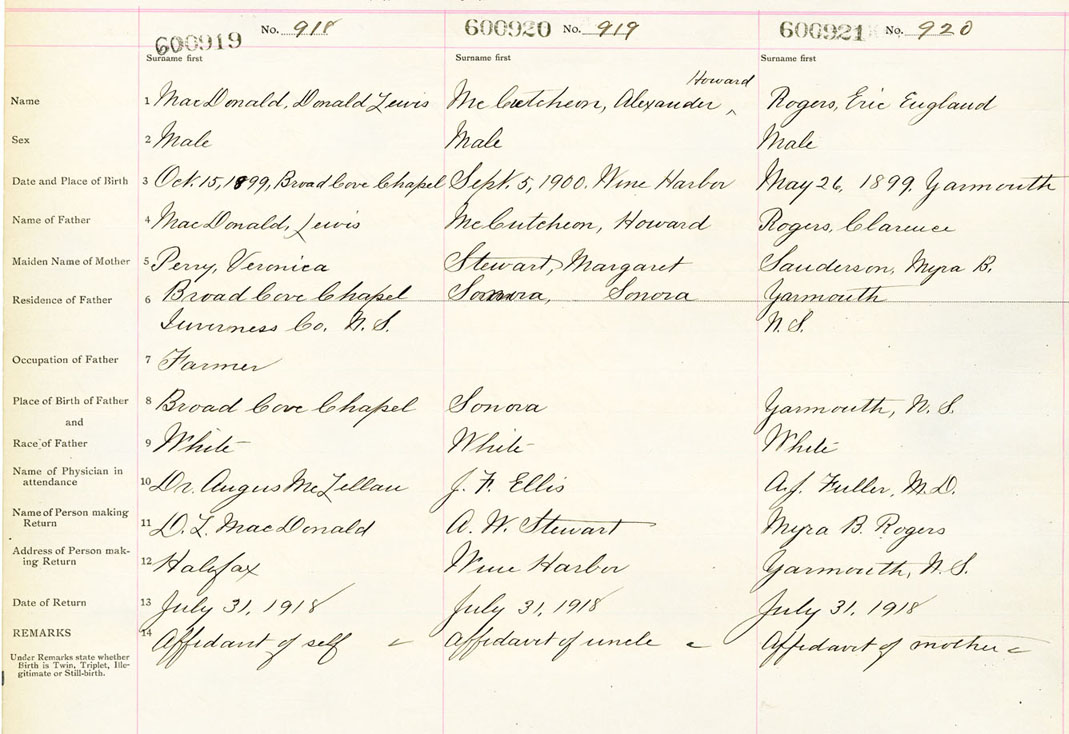 600919 No. 918 600920 No. 919 600921 No. 920
Surname first Surname first Surname first
Howard
Name 1 MacDonald, Donald Lewis McCutcheon, Alexander ‸ Rogers, Eric England
Sex 2 Male Male Male
Date and Place of Birth 3 Oct. 15, 1899, Broad Cove Chapel Sept. 5, 1900. Wine Harbor May 26, 1899, Yarmouth
Name of Father 4 MacDonald, Lewis McCutcheon, Howard Rogers, Clarence
Maiden Name of Mother 5 Perry, Veronica Stewart, Margaret Sauderson, Myra B.
Residence of Father 6 Broad Cove Chapel Sonora, Sonora Yarmouth
Inverness Co. N.S. N.S.
Occupation of Father 7 Farmer
Place of Birth of Father 8 Broad Cove Chapel Sonora Yarmouth, N.S.
and
Race of Father 9 White White White
Name of Physician in
attendance 10 Dr. Angus McLellan J. F. Ellis A. J. Fuller, M.D.
Name of Person making
Return 11 D. L. MacDonald A. W. Stewart Myra B. Rogers
Address of Person mak-
ing Return 12 Halifax Wine Harbor Yarmouth, N.S.
Date of Return 13 July 31, 1918 July 31, 1918 July 31, 1918
REMARKS 14 Affidavit of self Affidavit of uncle Affidavit of mother
Under Remarks state whether
Birth is Twin, Triplet, Ille-
gitimate or Still-birth.